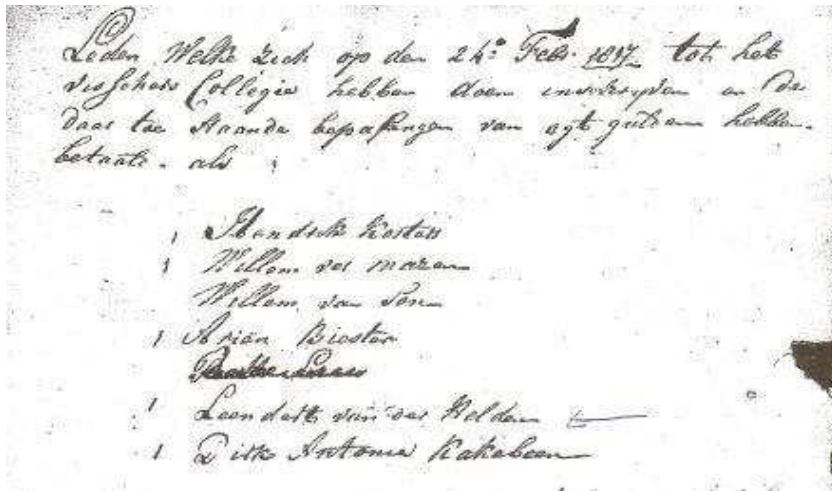 Leden Welke zich op den 24e Feb. 1817 tot het
visschers Collegie hebben doen inschrijven en de
daar toe staande bepalingen van agt gulden hebben
betaald. als
Hendrik Kosters
Willem ver mazen
Willem van Son
Arien Biester
Leendert van der Velden
Dirk Antonie Kakebeen